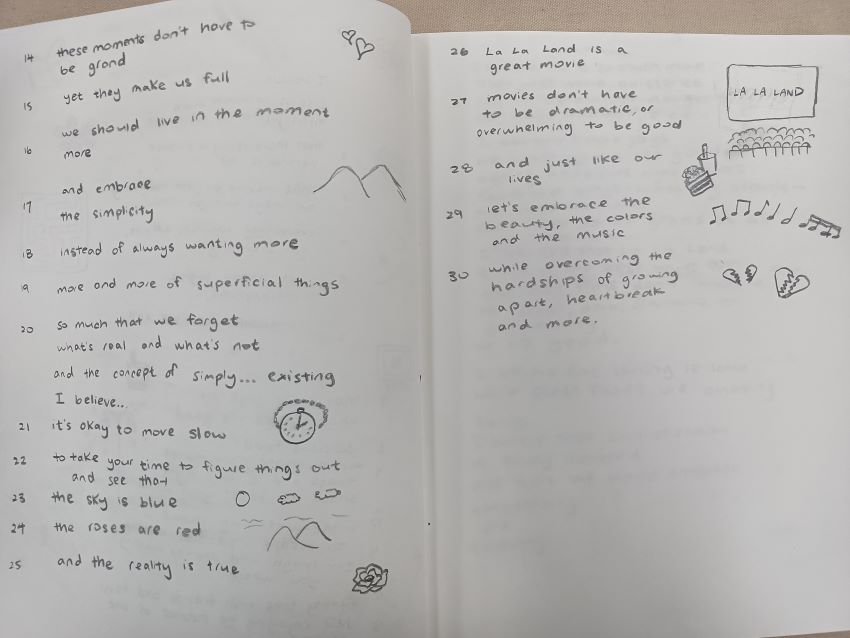 14 these moments don't have to
be grand
15 yet they make us full
we should live in the moment
16 more
and embrace
17 the simplicity
18 instead of always wanting more
19 more and more of superficial things
20 so much that we forget
what's real and what's not
and the concept of simply... existing
I believe...
21 it's okay to move slow
22 to take your time to figure things out
and see that
23 the sky is blue
24 the roses are red
25 and the reality is true
26 La La Land is a
great movie
27 movies don't have
to be dramatic, or
overwhelming to be good
LA LA LAND
28 and just like our
lives
29 let's embrace the
beauty, the colors
and the music
30 while overcoming the
hardships of growing
apart, heartbreak
and more.